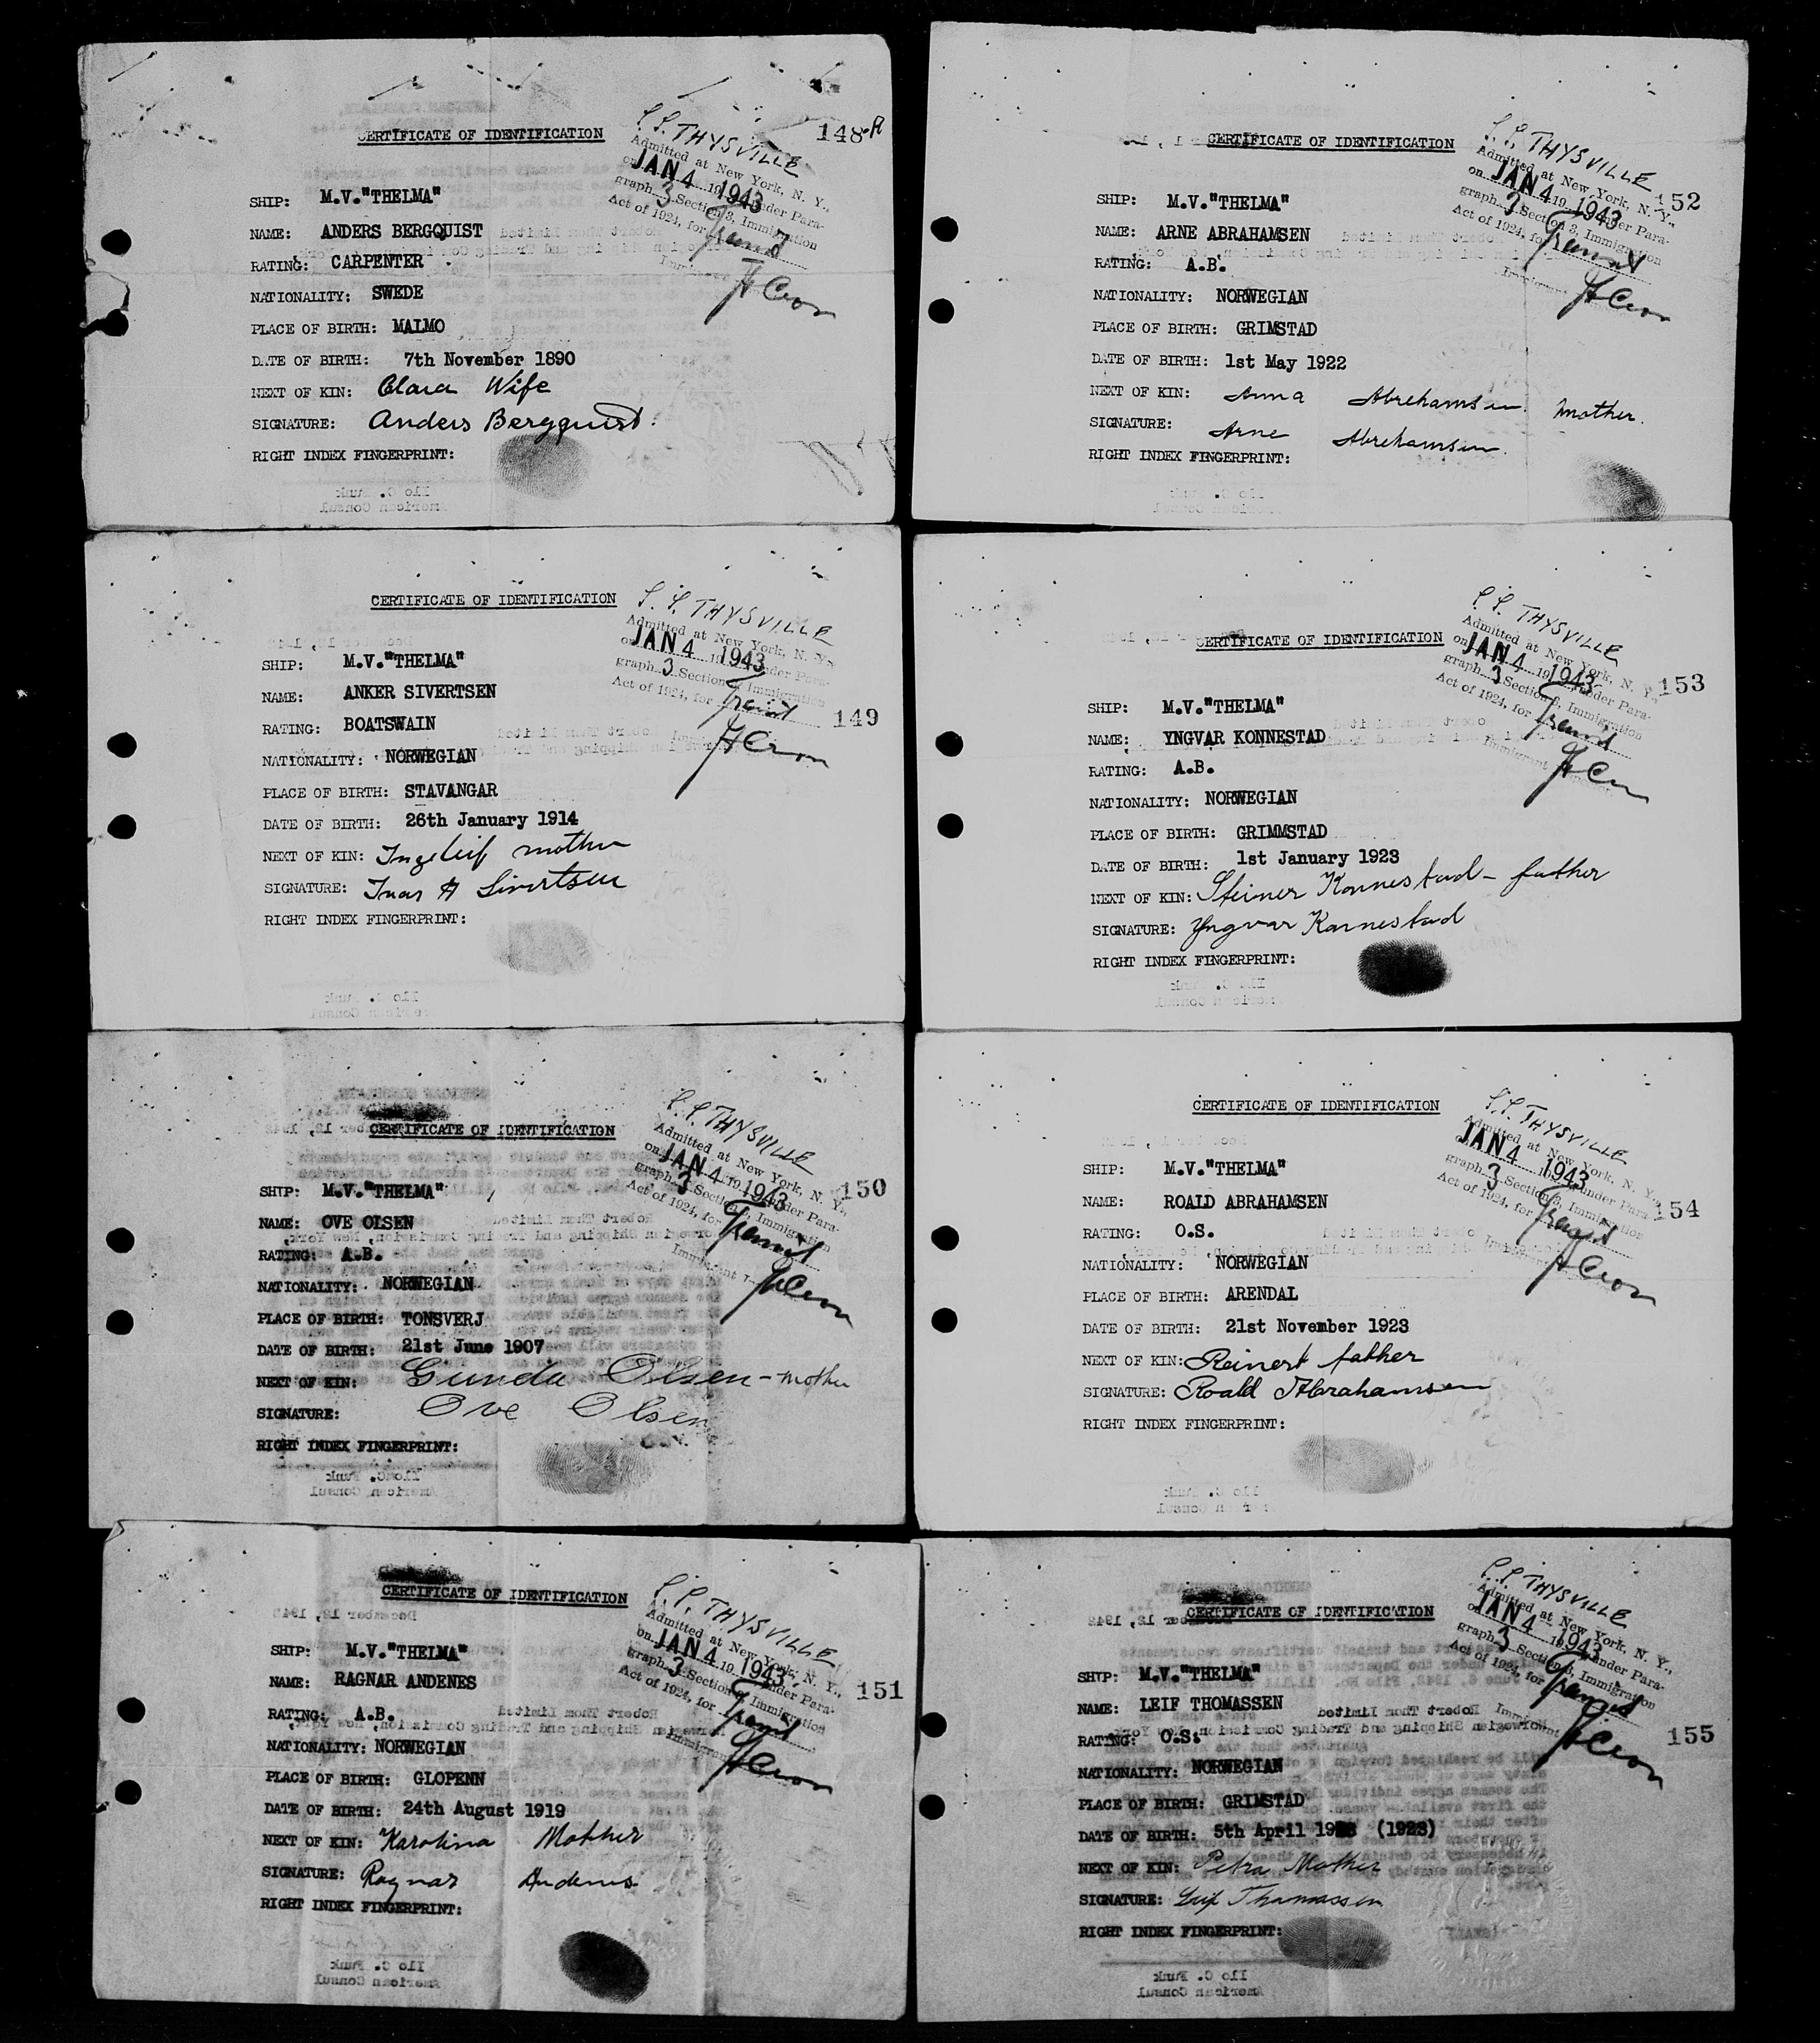 CERTIFICATE OF IDENTIFICATION
148-R
S.S. THYSVILLE
Admitted at New York, N. Y.,
on JAN 4 19 1943 under Para-
graph 3 Section 3, Immigration
Act of 1924, for Transit
SHIP: M.V."THELMA"
NAME: ANDERS BERGQUIST
RATING: CARPENTER
NATIONALITY: SWEDE
PLACE OF BIRTH: MALMO
DATE OF BIRTH: 7th November 1890
NEXT OF KIN: Clara Wife
SIGNATURE: Anders Bergquist.
RIGHT INDEX FINGERPRINT:
CERTIFICATE OF IDENTIFICATION
S.S. THYSVILLE
Admitted at New York, N. Y.,
on JAN 4 19 1943 under Para-
graph 3 Section 3, Immigration
Act of 1924, for Transit
149
SHIP: M.V."THELMA"
NAME: ANKER SIVERTSEN
RATING: BOATSWAIN
NATIONALITY: NORWEGIAN
PLACE OF BIRTH: STAVANGAR
DATE OF BIRTH: 26th January 1914
NEXT OF KIN: mother
SIGNATURE: A Sivertsen
RIGHT INDEX FINGERPRINT:
CERTIFICATE OF IDENTIFICATION
S.S. THYSVILLE
Admitted at New York, N. Y.,
on JAN 4 19 1943 under Para-
graph 3 Section 3, Immigration
Act of 1924, for Transit
150
SHIP: M.V."THELMA"
NAME: OVE OLSEN
RATING: A.B.
NATIONALITY: NORWEGIAN
PLACE OF BIRTH: TONSVERJ
DATE OF BIRTH: 21st June 1907
NEXT OF KIN: Gunda Olsen - mother
SIGNATURE: Ove Olsen
RIGHT INDEX FINGERPRINT:
CERTIFICATE OF IDENTIFICATION
S.S. THYSVILLE
Admitted at New York, N. Y.,
on JAN 4 19 1943 under Para-
graph 3 Section 3, Immigration
Act of 1924, for Transit
151
SHIP: M.V."THELMA"
NAME: RAGNAR ANDENES
RATING: A.B.
NATIONALITY: NORWEGIAN
PLACE OF BIRTH: GLOPENN
DATE OF BIRTH: 24th August 1919
NEXT OF KIN: Karolina Mother
SIGNATURE: Ragnar Andenes
RIGHT INDEX FINGERPRINT:
CERTIFICATE OF IDENTIFICATION
S.S. THYSVILLE
Admitted at New York, N. Y.,
on JAN 4 19 1943 under Para-
graph 3 Section 3, Immigration
Act of 1924, for Transit
152
SHIP: M.V."THELMA"
NAME: ARNE ABRAHAMSEN
RATING: A.B.
NATIONALITY: NORWEGIAN
PLACE OF BIRTH: GRIMSTAD
DATE OF BIRTH: 1st May 1922
NEXT OF KIN: Anna Abrehamsen. mother.
SIGNATURE: Arne Abrehamsen.
RIGHT INDEX FINGERPRINT:
CERTIFICATE OF IDENTIFICATION
S.S. THYSVILLE
Admitted at New York, N. Y.,
on JAN 4 19 1943 under Para-
graph 3 Section 3, Immigration
Act of 1924, for Transit
153
SHIP: M.V."THELMA"
NAME: YNGVAR KONNESTAD
RATING: A.B.
NATIONALITY: NORWEGIAN
PLACE OF BIRTH: GRIMMSTAD
DATE OF BIRTH: 1st January 1923
NEXT OF KIN: Steiner Konnestad - father
SIGNATURE: Yngvar Konnestad
RIGHT INDEX FINGERPRINT:
CERTIFICATE OF IDENTIFICATION
S.S. THYSVILLE
Admitted at New York, N. Y.,
on JAN 4 19 1943 under Para-
graph 3 Section 3, Immigration
Act of 1924, for Transit
154
SHIP: M.V."THELMA"
NAME: ROALD ABRAHAMSEN
RATING: O.S.
NATIONALITY: NORWEGIAN
PLACE OF BIRTH: ARENDAL
DATE OF BIRTH: 21st November 1923
NEXT OF KIN: Reinert father
SIGNATURE: Roald Abrahamsen
RIGHT INDEX FINGERPRINT:
CERTIFICATE OF IDENTIFICATION
S.S. THYSVILLE
Admitted at New York, N. Y.,
on JAN 4 19 1943 under Para-
graph 3 Section 3, Immigration
Act of 1924, for Transit
155
SHIP: M.V."THELMA"
NAME: LEIF THOMASSEN
RATING: O.S.
NATIONALITY: NORWEGIAN
PLACE OF BIRTH: GRIMSTAD
DATE OF BIRTH: 5th April 1923 (1923)
NEXT OF KIN: Petra Mother
SIGNATURE: Leif Thomassen
RIGHT INDEX FINGERPRINT: